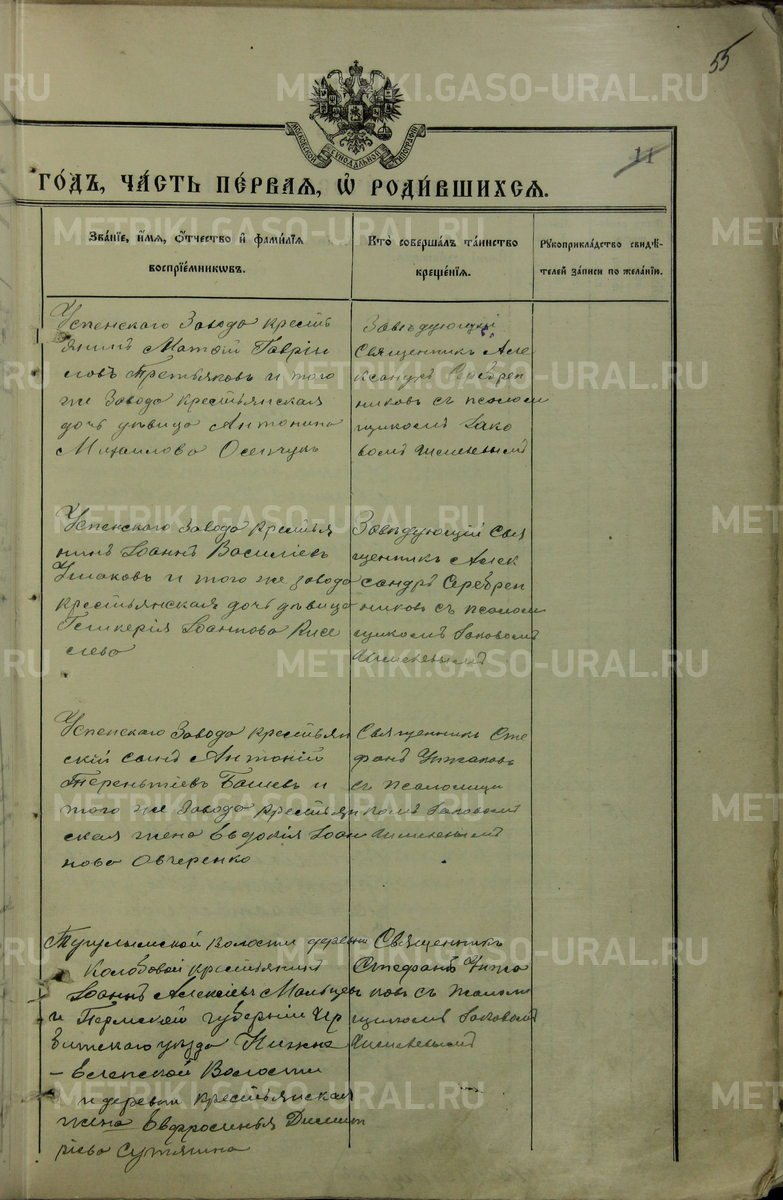 55
МОСКОВСКОЙ СѴНОДАЛЬНОЙ ТИПОГРАФІИ
11
ГО́ДЪ, ЧА́СТЬ ПЕ́РВАЯ, Ѡ РОДИ́ВШИХСЯ.
Зва́нїе, и́мя, ѻ́тчество и҆ фами́лїя
воспрїе́мниковъ.
Кто̀ соверша́лъ та́инство
креще́нїя.
Рꙋкоприкла́дство свидѣ́-
телей за́писи по жела́нїю.
Успенскаго Завода кресть
янинъ Матѳій Гавріи
ловъ Третьяковъ и того
же Завода крестьянская
дочь дѣвица Антонина
Михаилова Осепчукъ
Завѣдующій
Священникъ Але
ксандръ Серебрен
никовъ съ псалом
щикомъ Іако
вомъ
Успенскаго Завода крестья
нинъ Іоаннъ Василіевъ
Ушаковъ и того же завода
крестьянская дочь дѣвица
Гликерія Іоаннова Кисе
лева
Завѣдующій Свя
щенникъ Алек
сандръ Серебрен
никовъ съ псалом
щикомъ Іаковомъ
Успенскаго Завода крестьян
скій сынъ Антоній
Терентіевъ Башевъ и
того же Завода крестьян
ская жена Евдокія Іоан
нова Овчеренко
Священникъ Сте
фанъ
съ Псаломщи
комъ Іаковомъ
Тугулымской Волости деревни
Колобовой крестьянинъ
Іоаннъ Алексіевъ Мальцевъ
и Пермской губерніи Ир
битскаго уѣзда Нижне
- Еланской Волости
и деревни крестьянская
жена Евфросинья Димит
ріева Сутягина
Священникъ
Стефанъ
съ Псалом
щикомъ Іаковомъ
METRIKI.GASO-URAL.RU